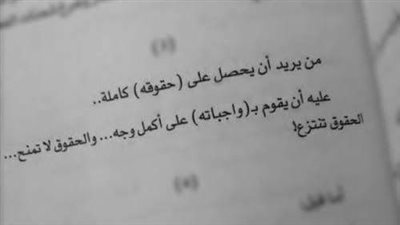 (٤)
من يريد أن يحصل على (حقوقه) كاملة..
عليه أن يقوم بـ(واجباته) على أكمل وجه... والحقوق لا تمنح...
الحقوق تنتزع!
(٥)